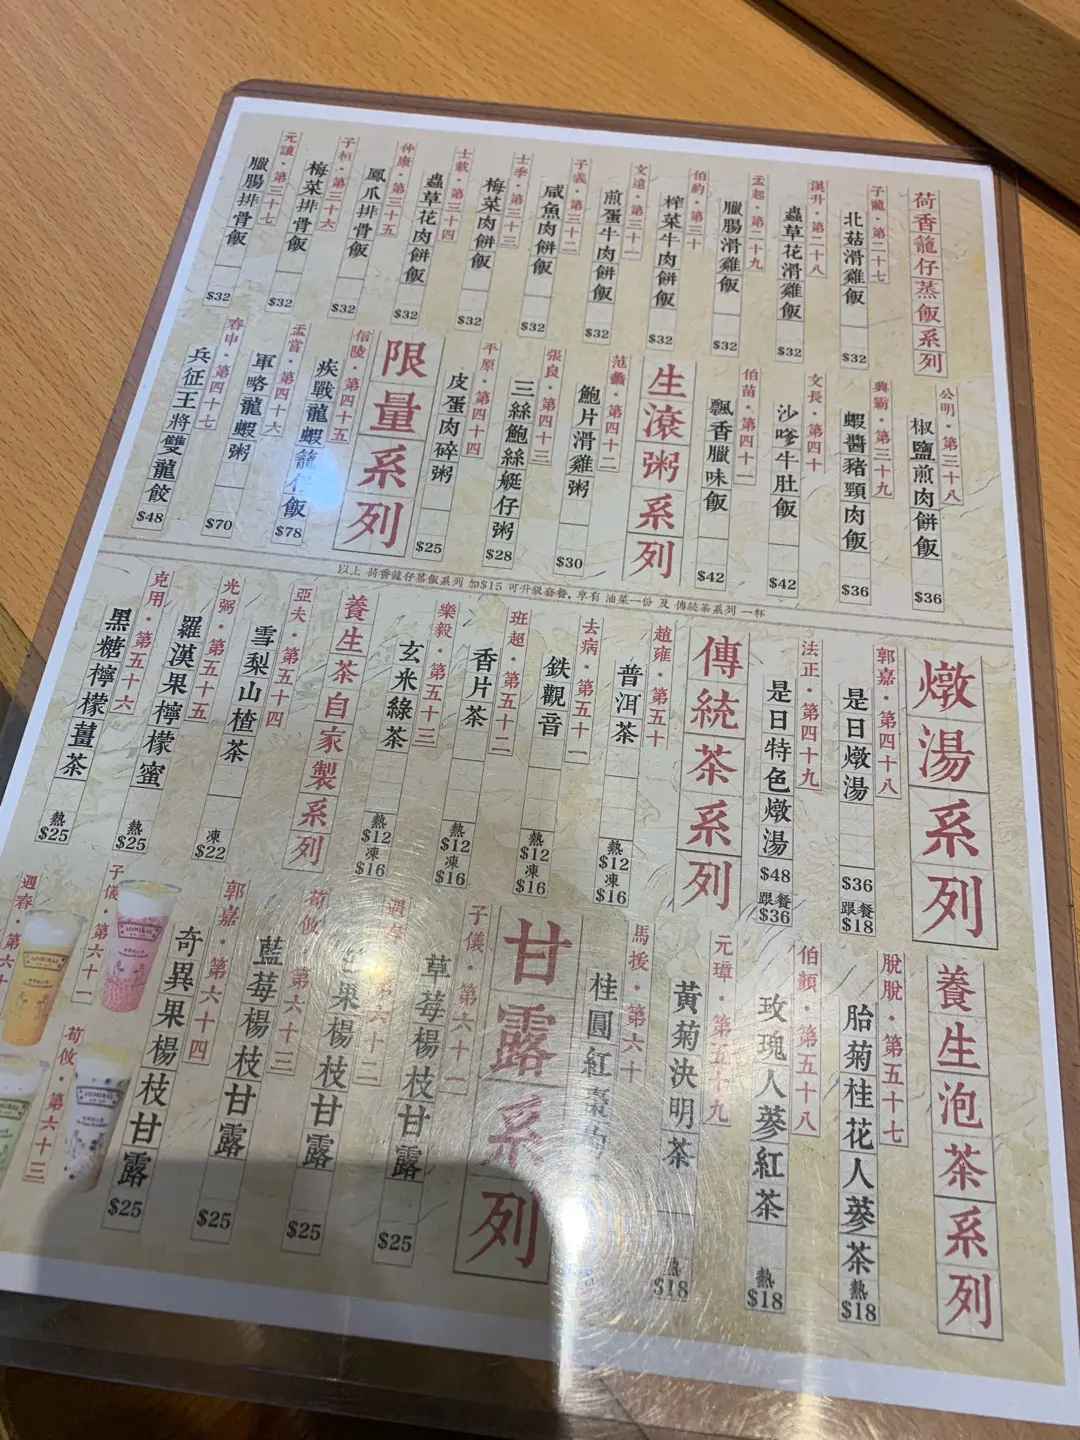 荷香籠仔蒸飯系列
子龍·第二十七
北菇滑雞飯 $32
漢升·第二十八
蟲草花滑雞飯 $32
孟起·第二十九
臘腸滑雞飯 $32
伯約·第三十
榨菜牛肉餅飯 $32
文遠·第三十一
煎蛋牛肉餅飯 $32
子義·第三十二
咸魚肉餅飯 $32
士季·第三十三
梅菜肉餅飯 $32
士載·第三十四
蟲草花肉餅飯 $32
仲康·第三十五
鳳爪排骨飯 $32
子桓·第三十六
梅菜排骨飯 $32
元讓·第三十七
臘腸排骨飯 $32
公明·第三十八
椒鹽煎肉餅飯 $36
興霸·第三十九
蝦醬豬頸肉飯 $36
文長·第四十
沙嗲牛肚飯 $42
伯苗·第四十一
飄香臘味飯 $42
生滾粥系列
范蠡·第四十二
鮑片滑雞粥 $30
張良·第四十三
三絲鮑絲艇仔粥 $28
平原·第四十四
皮蛋肉碎粥 $25
限量系列
信陵·第四十五
疾戰龍蝦籠仔飯 $78
孟嘗·第四十六
軍略龍蝦粥 $70
春申·第四十七
兵征王將雙龍餃 $48
以上 荷香籠仔蒸飯系列 加$15 可升級套餐,享有 油菜一份 及 傳統茶系列 一杯
燉湯系列
郭嘉·第四十八
是日燉湯 $36 跟餐 $18
法正·第四十九
是日特色燉湯 $48 跟餐 $36
傳統茶系列
趙雍·第五十
普洱茶 熱 $12 凍 $16
去病·第五十一
鉄觀音 熱 $12 凍 $16
班超·第五十二
香片茶 熱 $12 凍 $16
樂毅·第五十三
玄米綠茶 熱 $12 凍 $16
養生茶自家製系列
亞夫·第五十四
雪梨山楂茶 凍 $22
光弼·第五十五
羅漢果檸檬蜜 熱 $25
克用·第五十六
黑糖檸檬薑茶 熱 $25
養生泡茶系列
脫脫·第五十七
胎菊桂花人蔘茶 熱 $18
伯顏·第五十八
玫瑰人蔘紅茶 熱 $18
元璋·第五十九
黃菊決明茶 熱 $18
馬援·第六十
桂圓紅棗
甘露系列
子儀·第六十一
草莓楊枝甘露 $25
第六十二
果楊枝甘露 $25
荀攸·第六十三
藍莓楊枝甘露 $25
郭嘉·第六十四
奇異果楊枝甘露 $25
子儀·第六十一
荀攸·第六十三
遇春·第六十
ADMIRAL